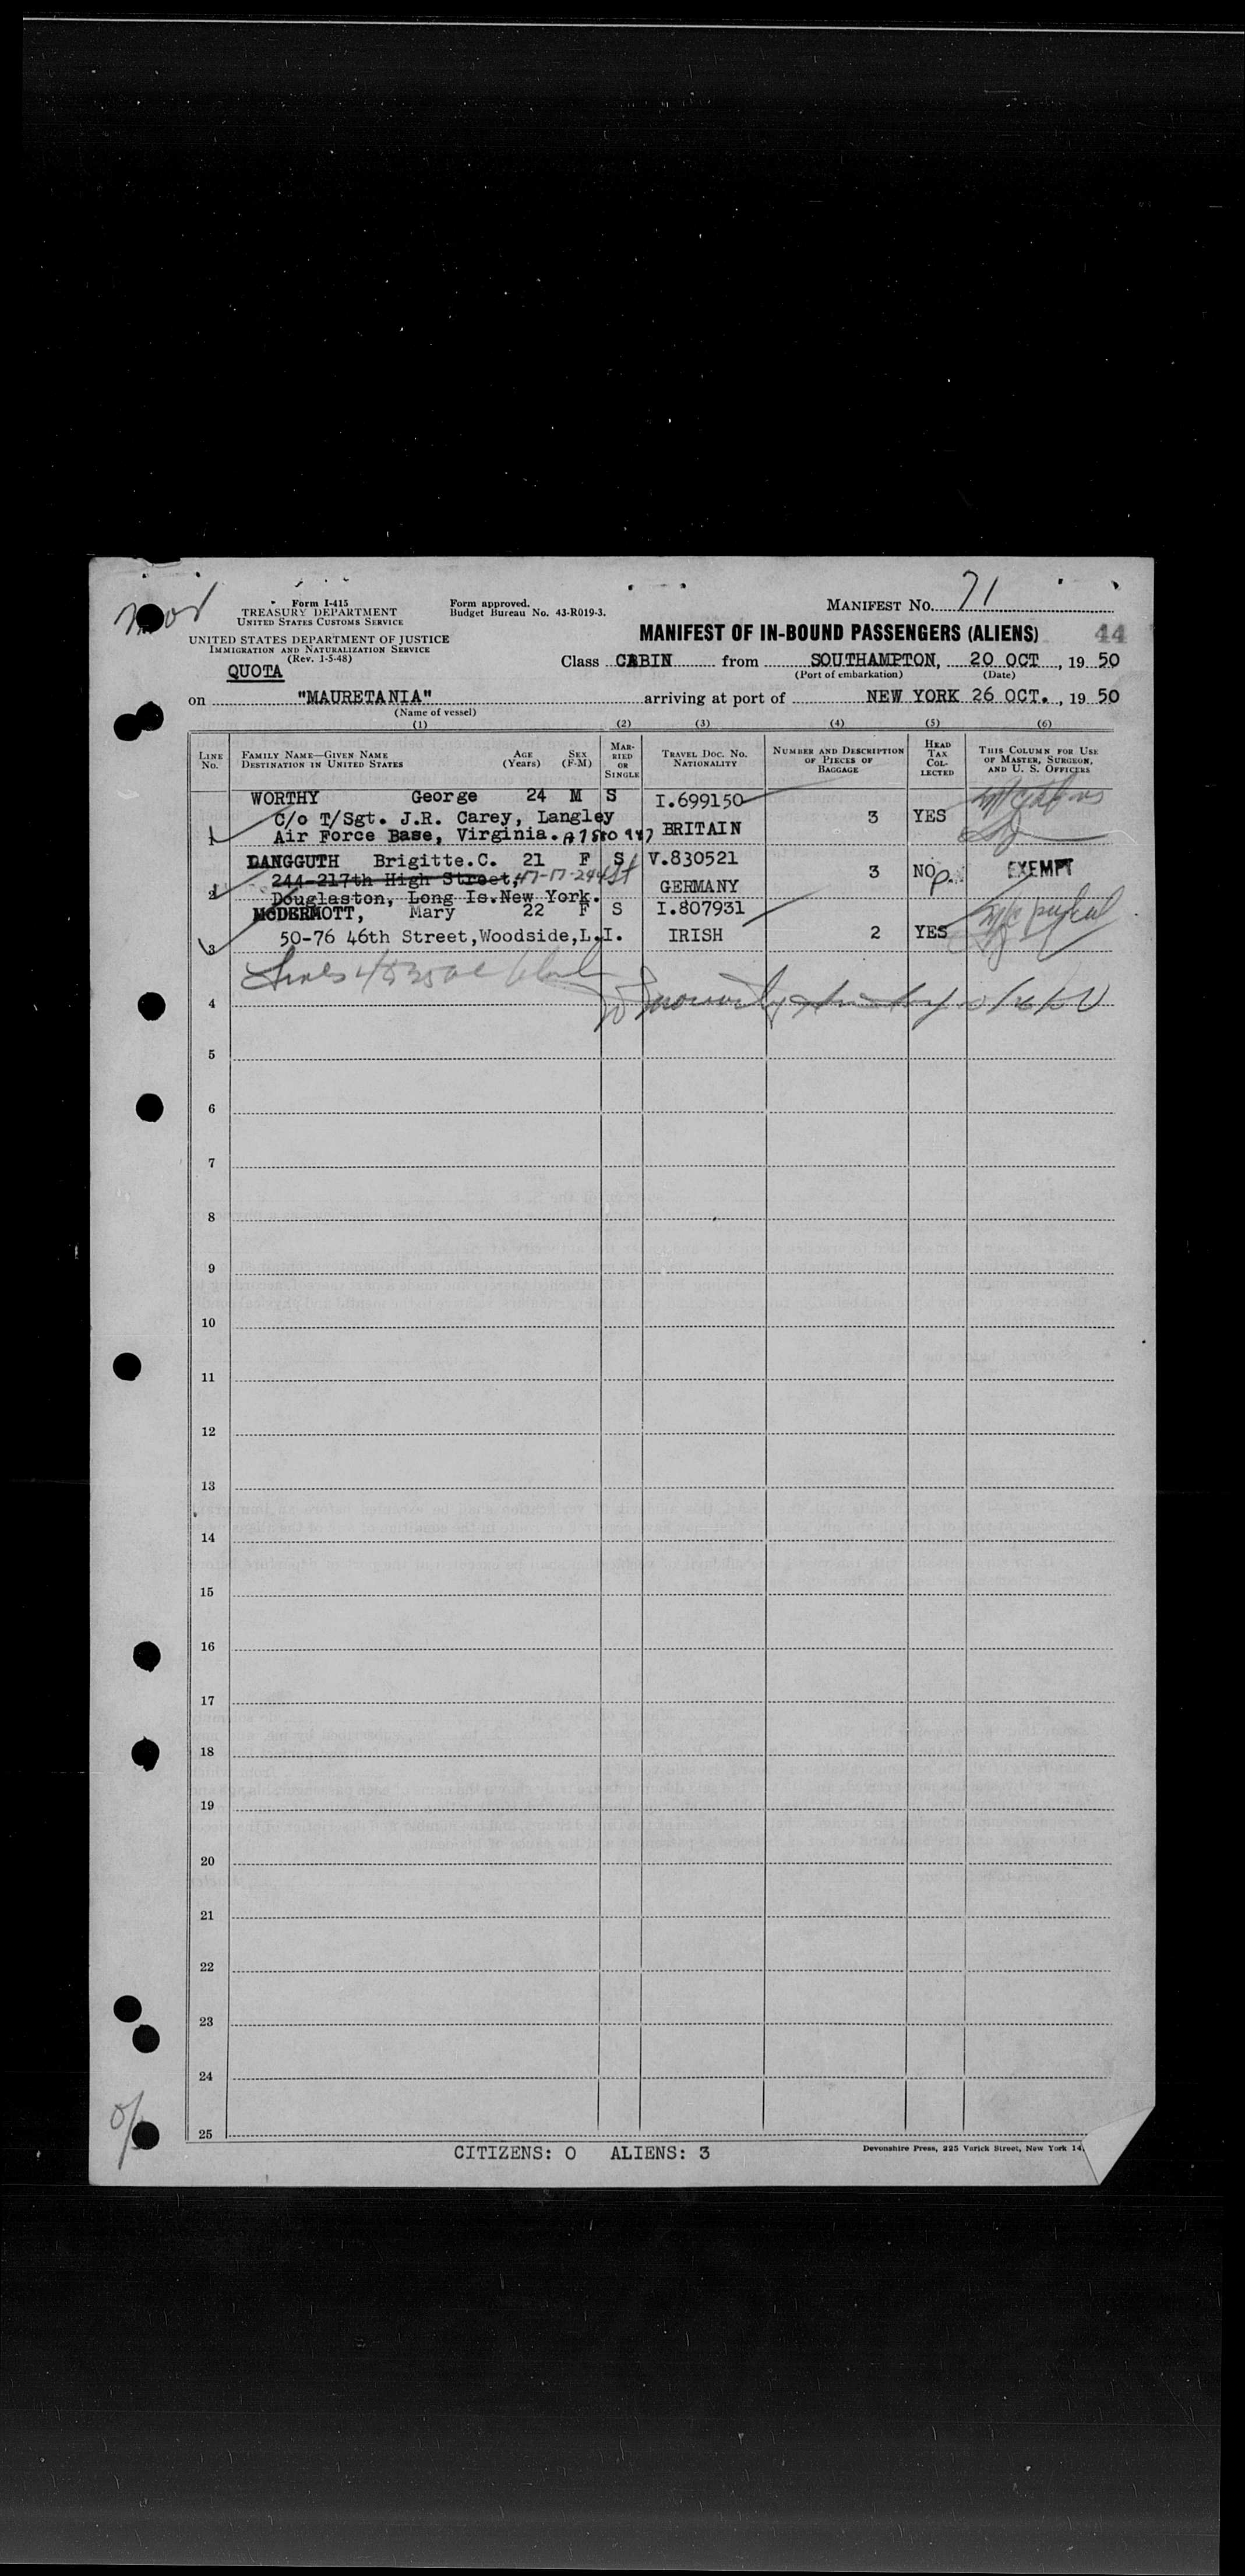 Form I-415
TREASURY DEPARTMENT
UNITED STATES CUSTOMS SERVICE
UNITED STATES DEPARTMENT OF JUSTICE
IMMIGRATION AND NATURALIZATION SERVICE
(Rev. 1-5-48)
Form approved.
Budget Bureau No. 43-R019-3.
MANIFEST NO. 71
MANIFEST OF IN-BOUND PASSENGERS (ALIENS) 44
QUOTA
Class CABIN from SOUTHAMPTON, 20 OCT, 19 50
(Port of embarkation) (Date)
on "MAURETANIA" arriving at port of NEW YORK 26 OCT., 19 50
(Name of vessel)
(1) (2) (3) (4) (5) (6)
LINE NO. FAMILY NAME—GIVEN NAME DESTINATION IN UNITED STATES AGE (Years) SEX (F-M) MARRIED OR SINGLE TRAVEL DOC. NO. NATIONALITY NUMBER AND DESCRIPTION OF PIECES OF BAGGAGE HEAD TAX COLLECTED THIS COLUMN FOR USE OF MASTER, SURGEON, AND U. S. OFFICERS
WORTHY George 24 M S I.699150
C/o T/Sgt. J.R. Carey, Langley 3 YES
1 Air Force Base, Virginia. BRITAIN
LANGGUTH Brigitte.C. 21 F S V.830521
244-217th High Street, 47-17-244 St 3 NO EXEMPT
2 Douglaston, Long Is.New York. GERMANY
McDERMOTT, Mary 22 F S I.807931
3 50-76 46th Street,Woodside,L.I. IRISH 2 YES
4
5
6
7
8
9
10
11
12
13
14
15
16
17
18
19
20
21
22
23
24
25
CITIZENS: 0 ALIENS: 3
Devonshire Press, 225 Varick Street, New York 14,